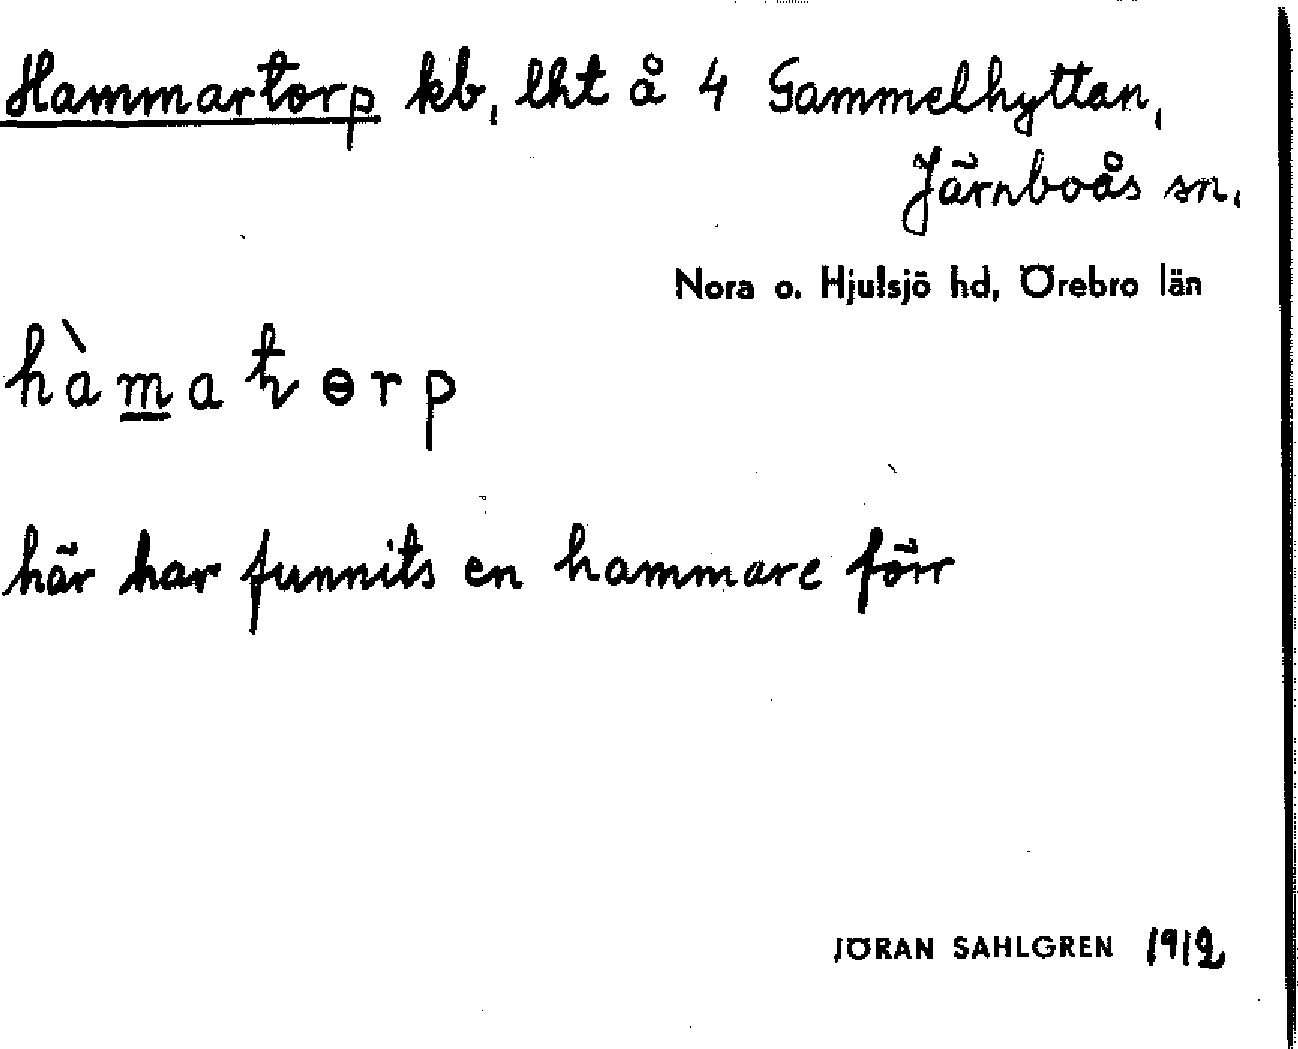 Hammartorp kb, lht å 4 Gammelhyttan,
Järnboås sn.
Nora o. Hjulsjö hd, Örebro län
hàmatɵrp
här har funnits en hammare förr
JÖRAN SAHLGREN 1912